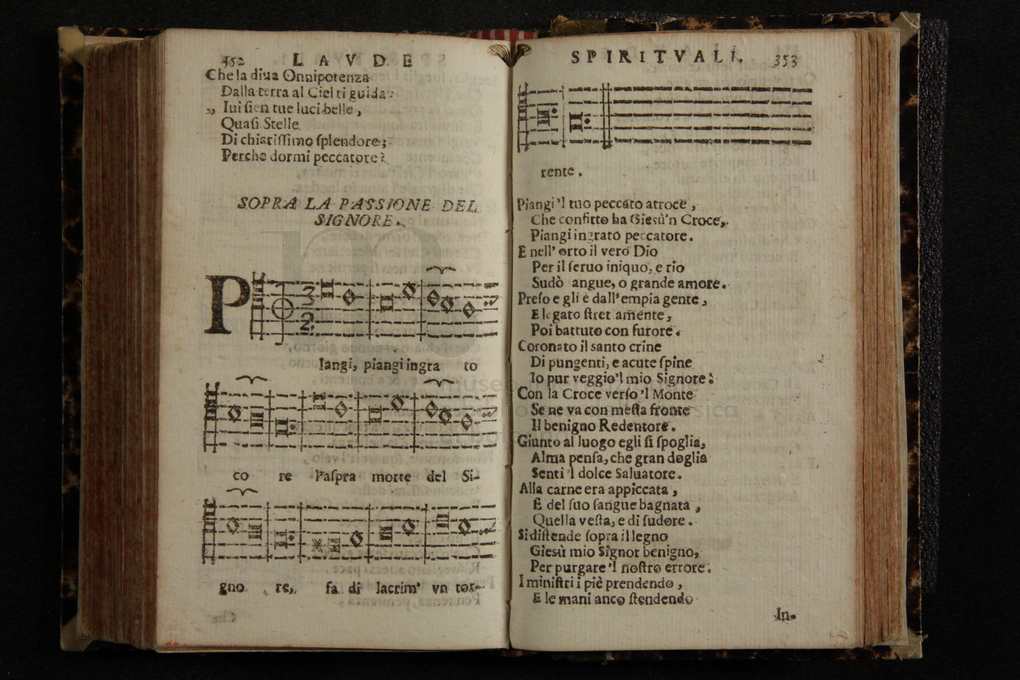 352 LAVDE
Che la diua Onnipotenza
Dalla terra al Ciel ti guida:
„ Iui sien tue luci belle,
Quasi Stelle
Di chiarissimo splendore;
Perche dormi peccatore?
SOPRA LA PASSIONE DEL
SIGNORE.
P
3
2
Iangi, piangi ingra to
co re l'aspra morte del Si-
gno re, fa di lacrim' vn tor-
SPIRITVALI. 353
rente.
Piangi 'l tuo peccato atroce,
Che confitto ha Giesù'n Croce,
Piangi ingrato peccatore.
E nell' orto il vero Dio
Per il seruo iniquo, e rio
Sudò angue, o grande amore.
Preso e gli è dall'empia gente,
E legato stret amente,
Poi battuto con furore.
Coronato il santo crine
Di pungenti, e acute spine
Io pur veggio'l mio Signore:
Con la Croce verso 'l Monte
Se ne va con mesta fronte
Il benigno Redentore.
Giunto al luogo egli si spoglia,
Alma pensa, che gran doglia
Senti 'l dolce Saluatore.
Alla carne era appiccata,
E del suo sangue bagnata,
Quella vesta, e di sudore.
Si distende sopra il legno
Giesù mio Signor benigno,
Per purgare 'l nostro errore.
I ministri i piè prendendo,
E le mani anco stendendo
In-